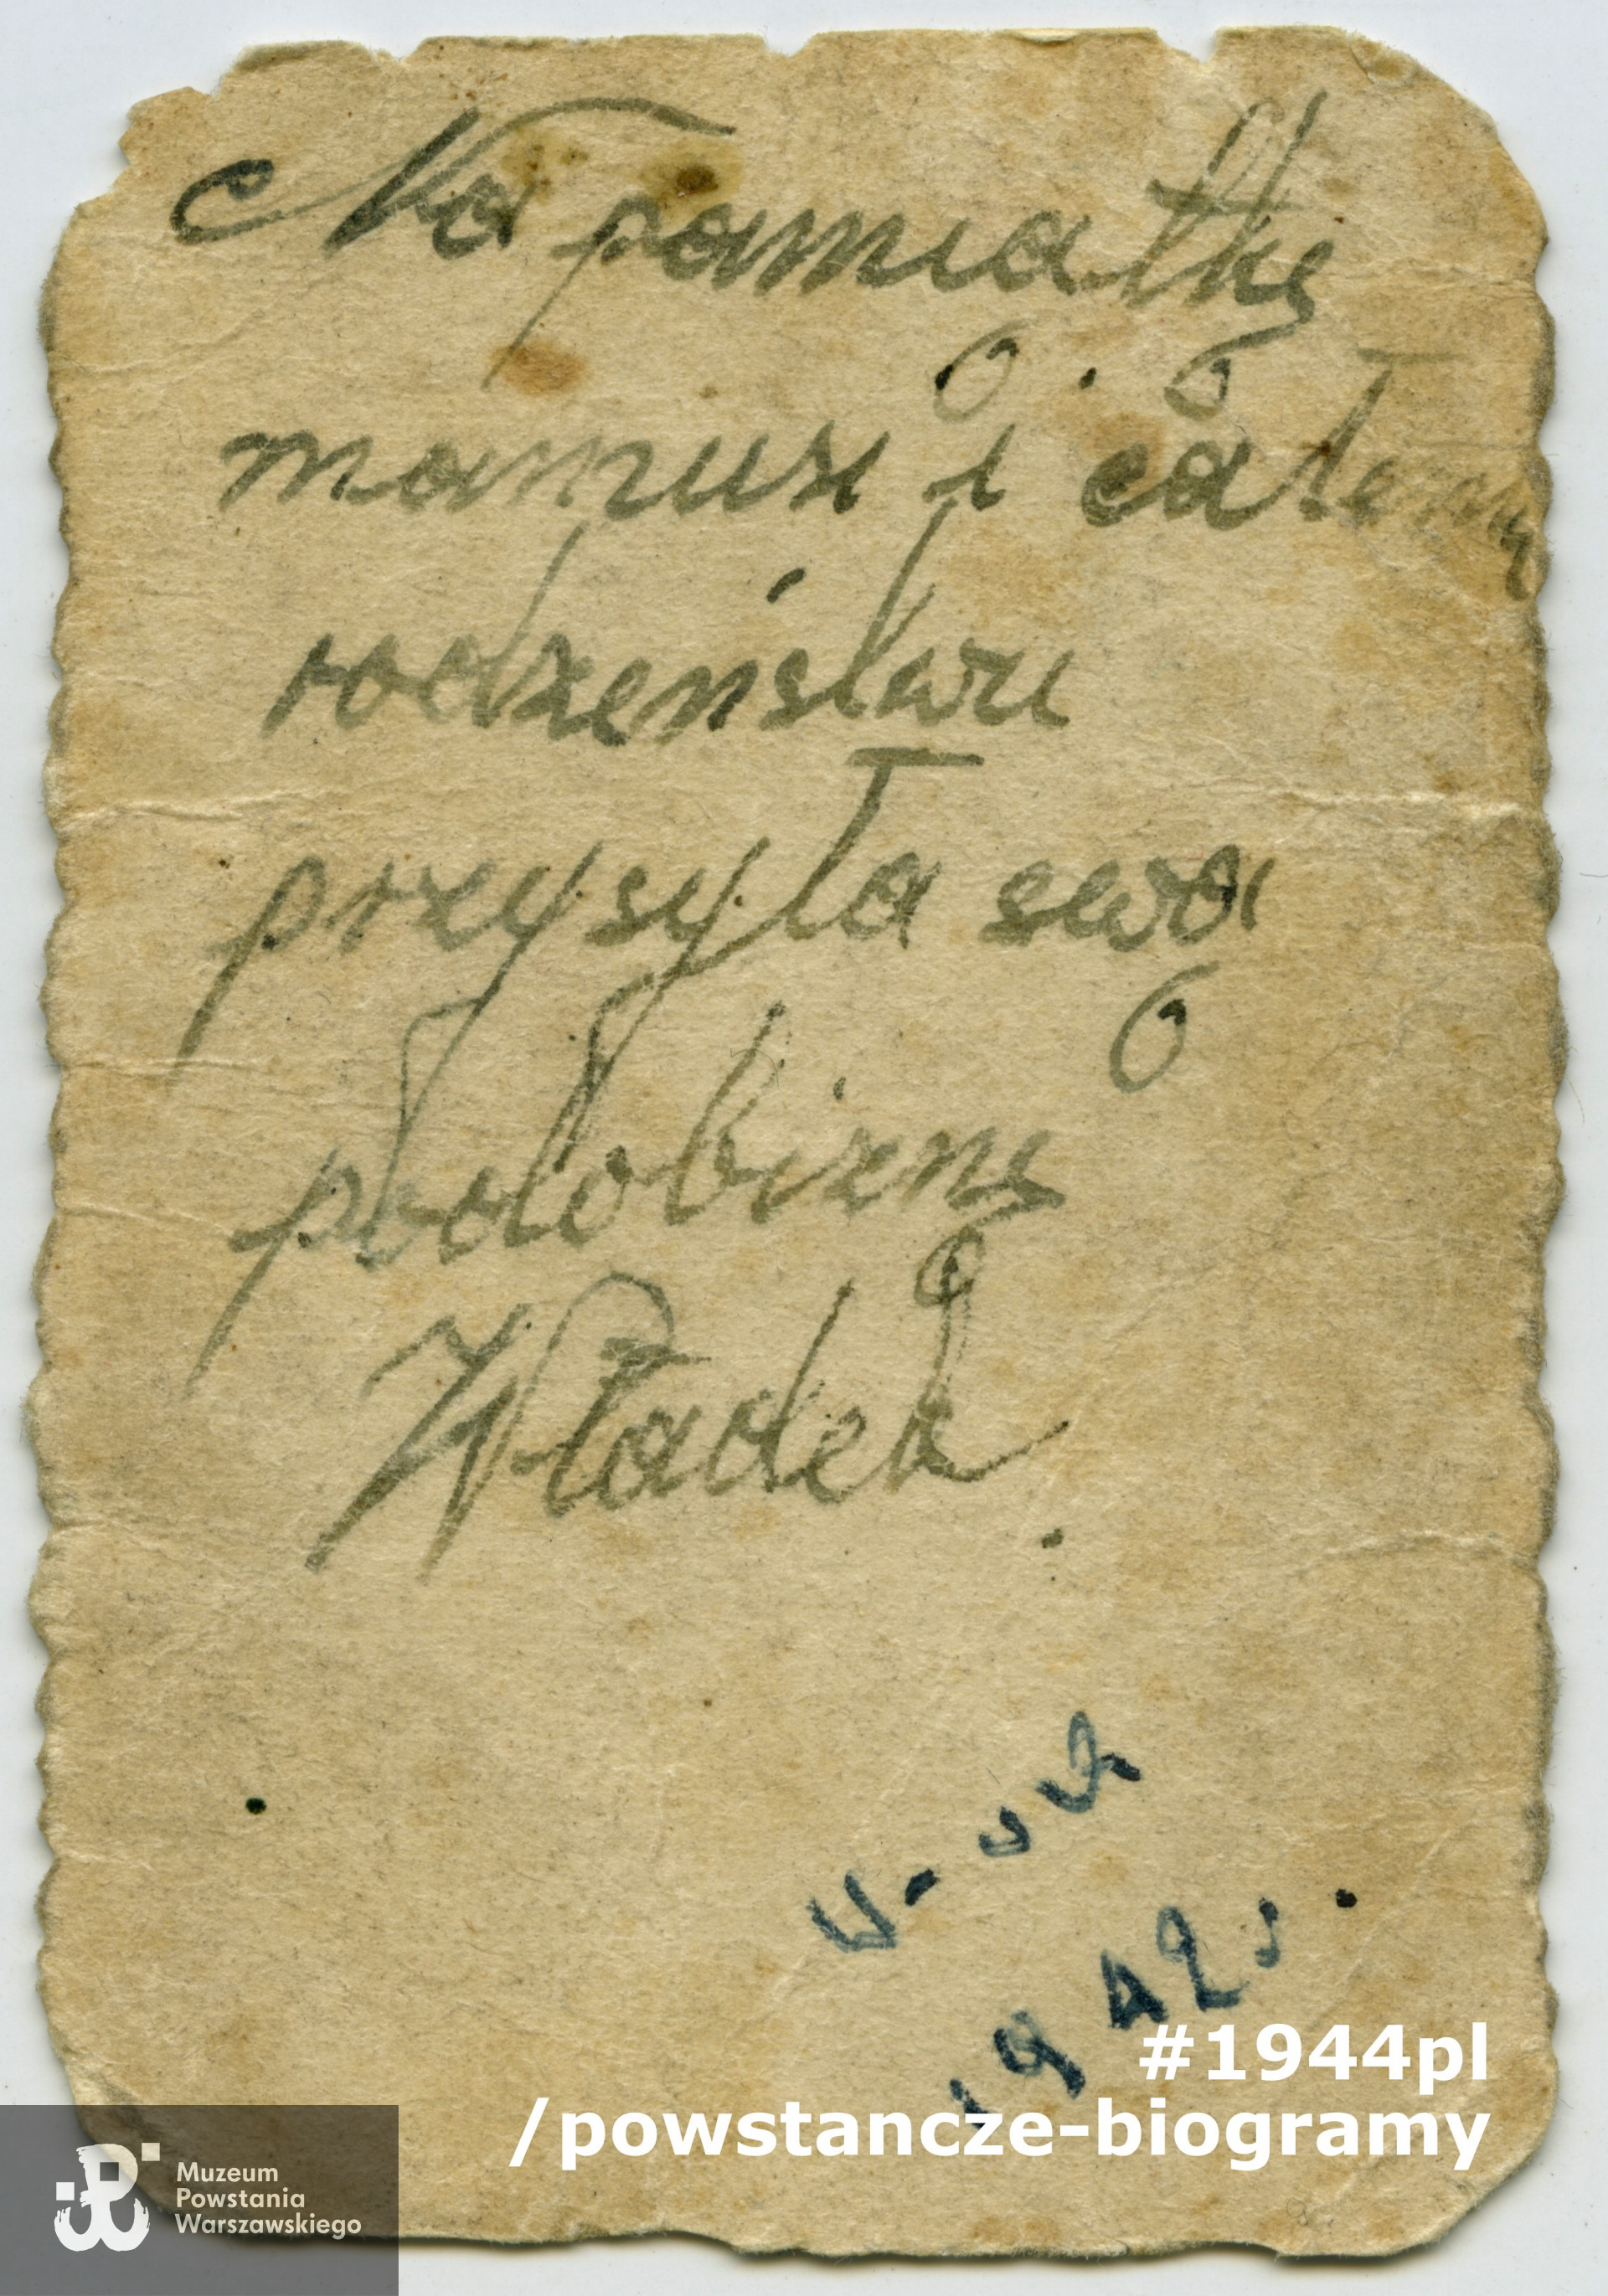 Na pamiątkę
mamusi i całemu
rodzeństwu
przysyła swą
podobiznę
Władek
W-wa
1942r.
#1944pl
/powstancze-biogramy
Muzeum
Powstania
Warszawskiego